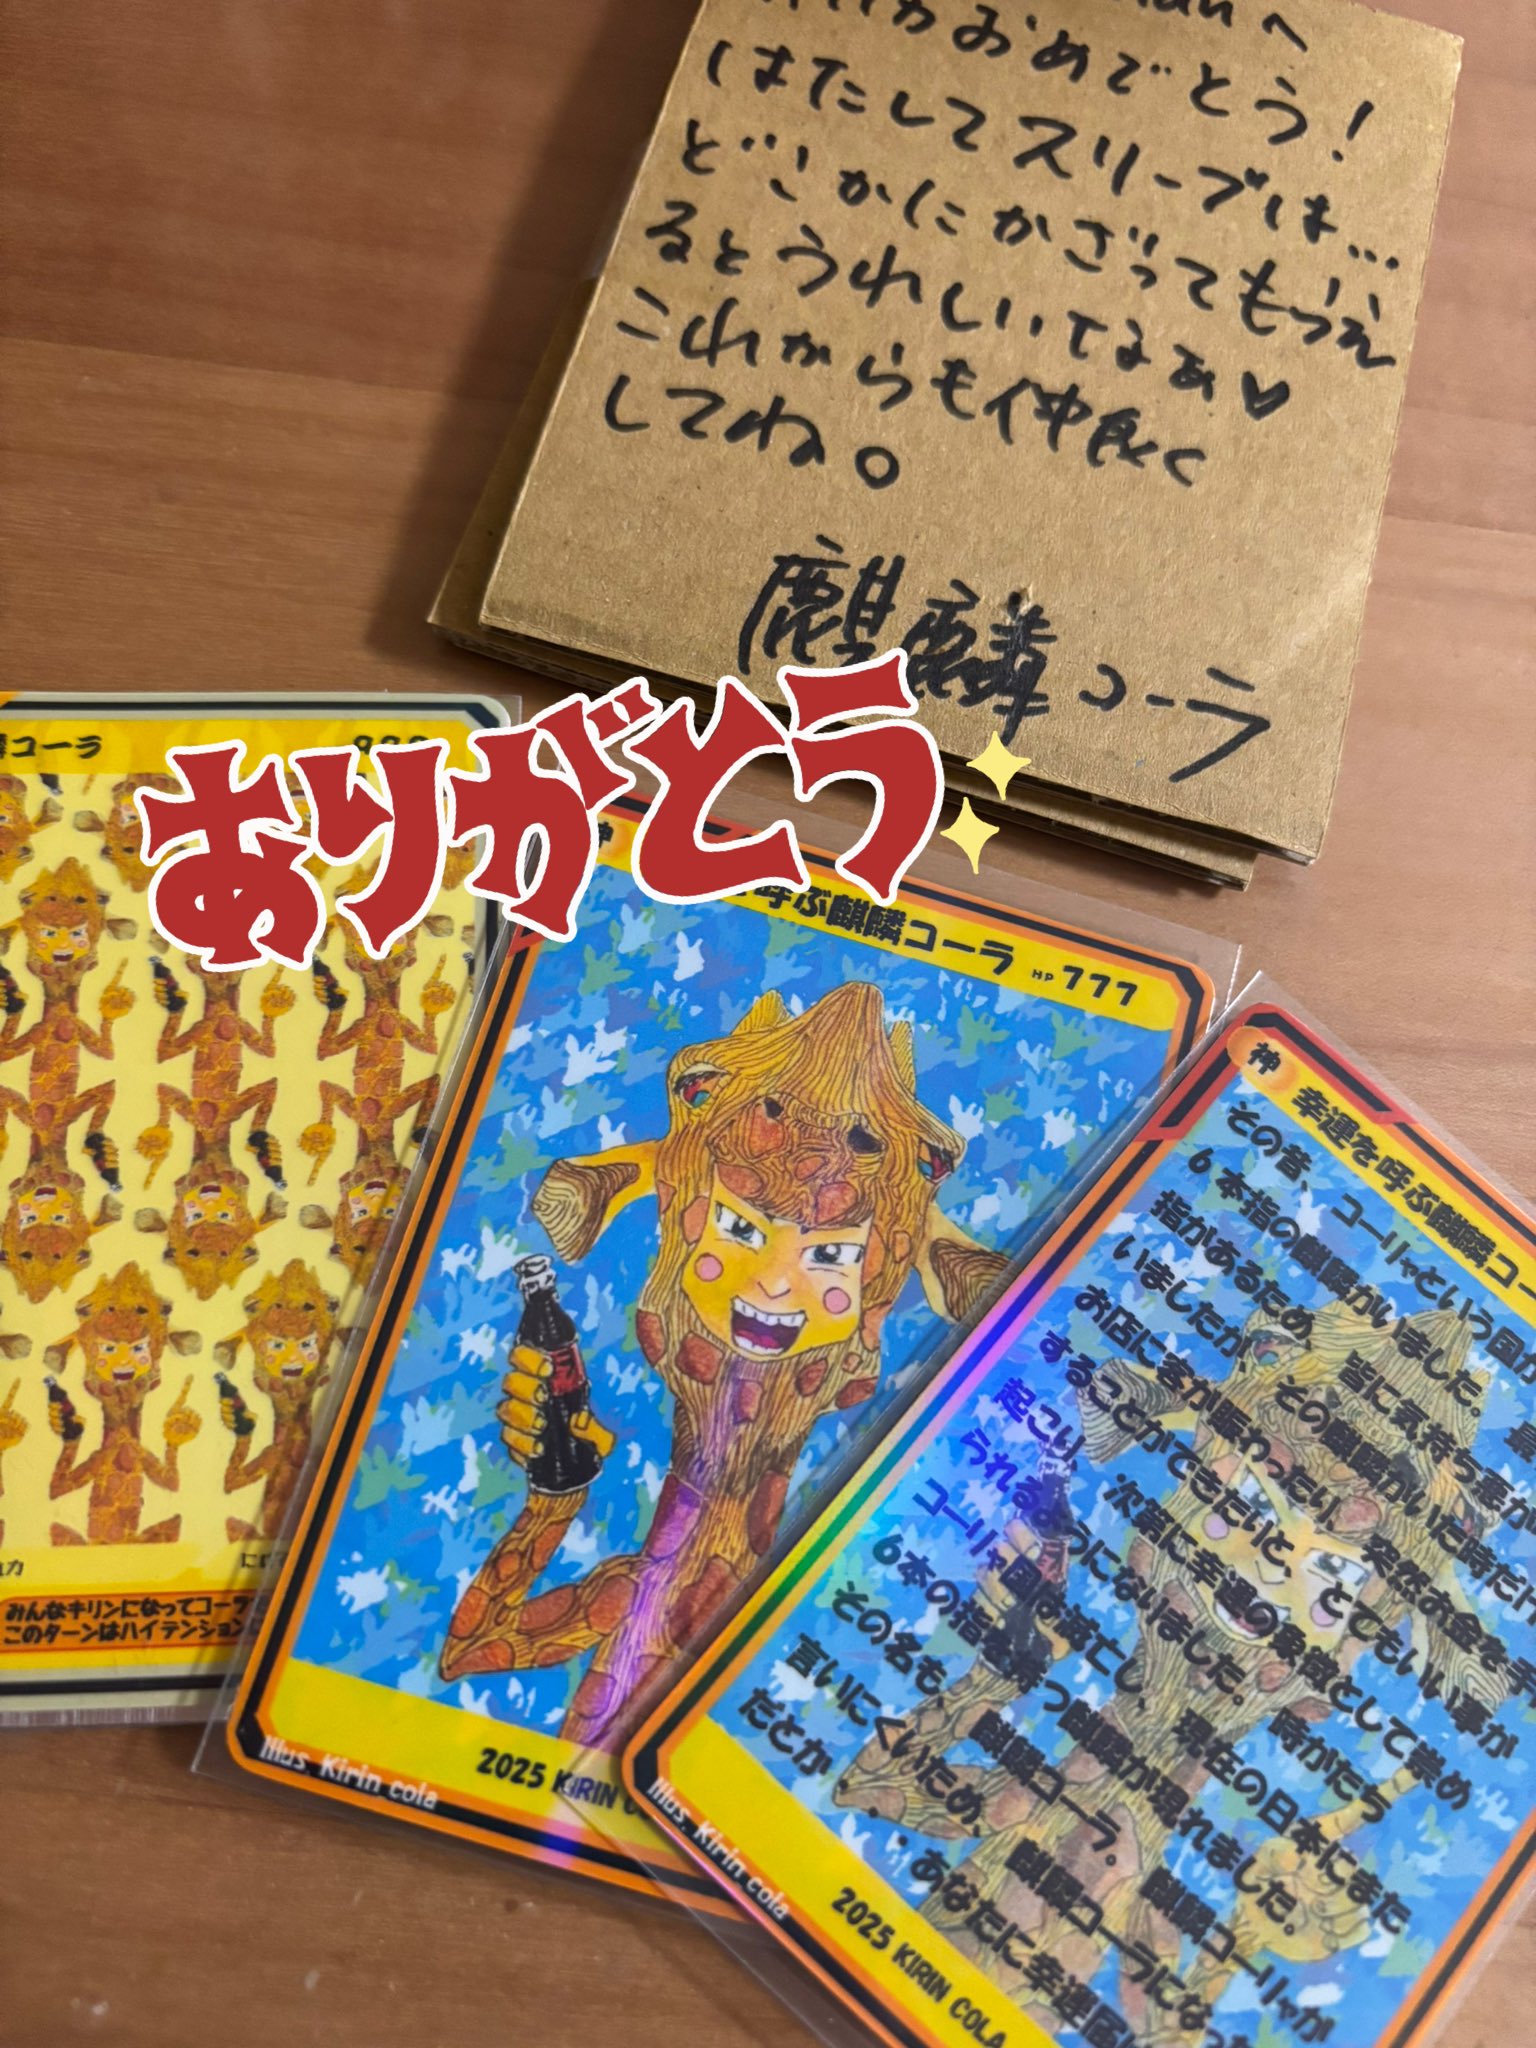 へ
おめでとう!
はたしてスリーブは…
どこかにかざってもらえ
るとうれしいてるぁ♥
これからも仲良く
してね。
麒麟コーラ
ありがとう
コーラ
みんなキリンになってコーラ
このターンはハイテンション
呼ぶ麒麟コーラ HP 777
Illus. Kirin cola
2025 KIRIN
神 幸運を呼ぶ麒麟コー
その昔、コーリャという国が
6本指の麒麟がいました。
指があるため、皆に気持ち悪が
いましたが、その麒麟がいた時だけ
お店に客が賑わったり、突然お金を
することができたりと、とてもいい事が
起こり、次第に幸運の象徴として崇め
られるようになりました。時がたち
コーリャ国は滅亡し、現在の日本にまた
6本の指を持つ麒麟が現れました。
その名も、麒麟コーラ。麒麟コーリャが
言いにくいため、麒麟コーラになった
だとか・・あなたに幸運届
Illus. Kirin cola
2025 KIRIN COLA